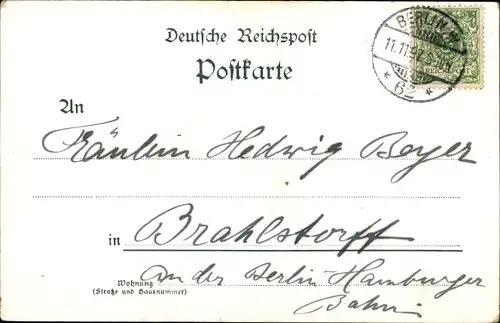 Deutsche Reichspost
Postkarte
BERLIN W
62
REICHSPOST
An
Fräulein Hedwig Beyer
in Brahlstorff
an der Berlin Hamburger
Bahn.
Wohnung
(Straße und Hausnummer)